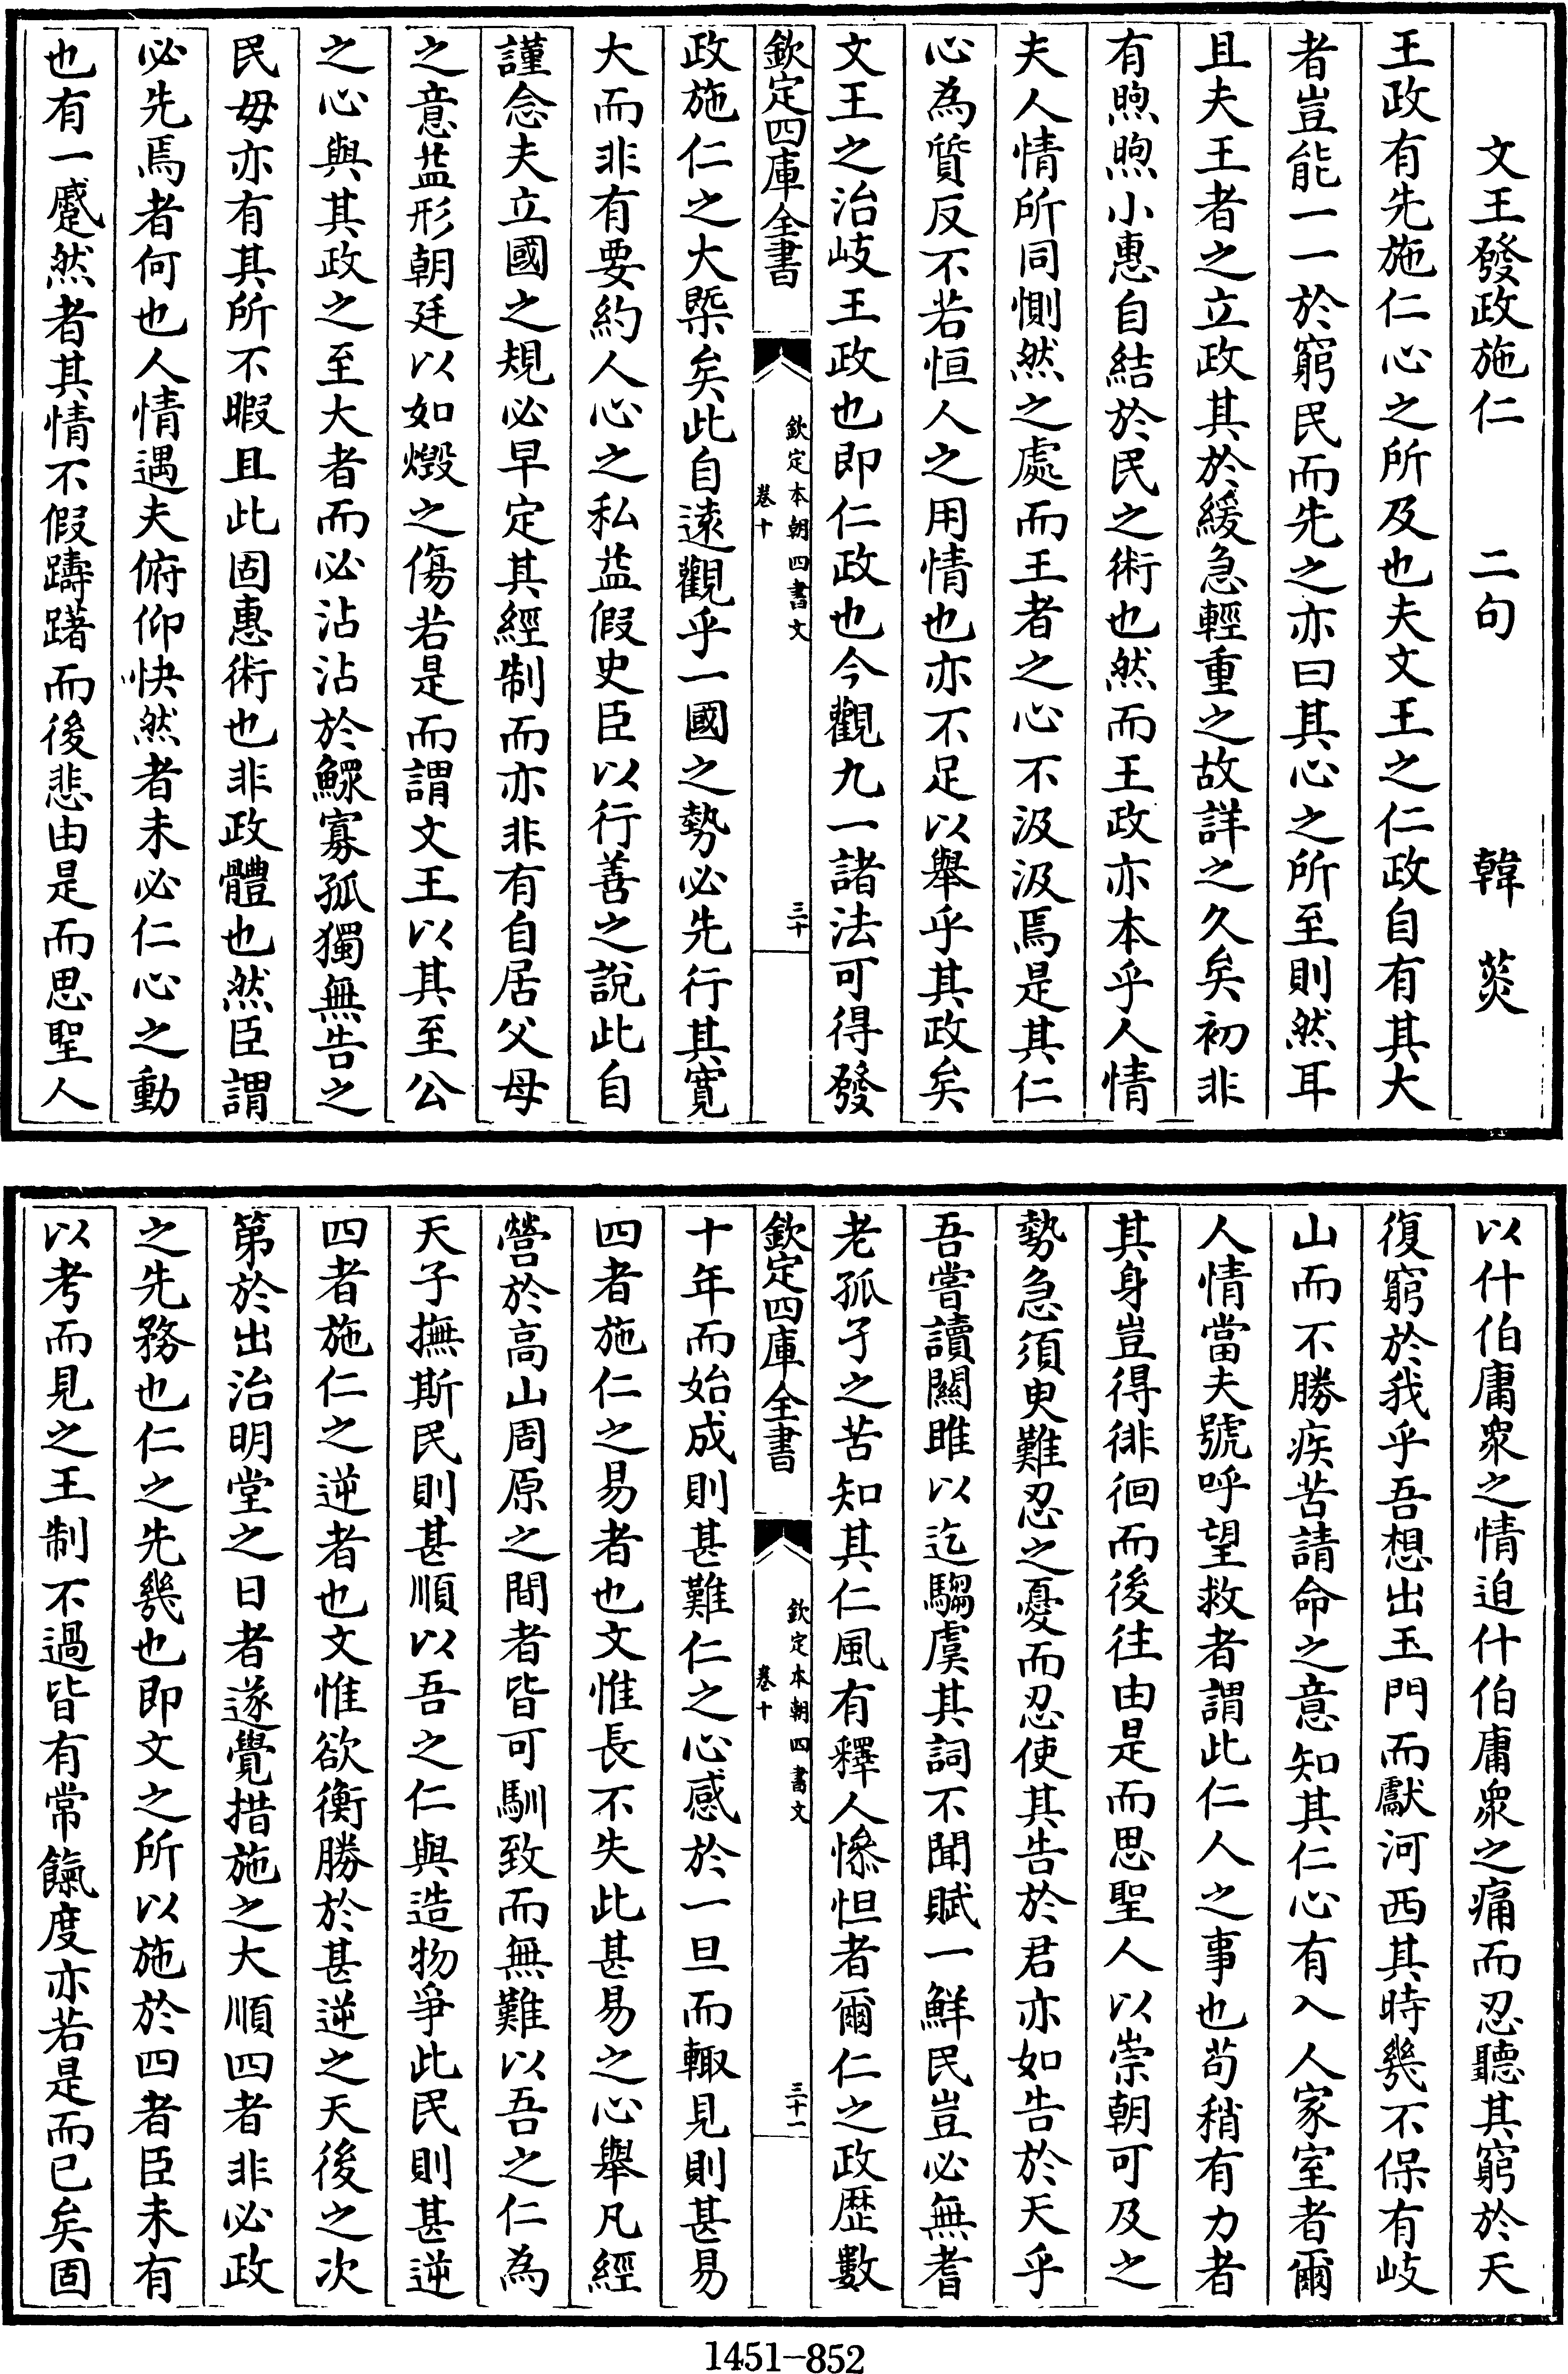 文王發政施仁　二句　韓菼
王政有先施仁心之所及也夫文王之仁政自有其大
者豈能一一於窮民而先之亦曰其心之所至則然耳
且夫王者之立政其於緩急輕重之故詳之久矣初非
有煦煦小惠自結於民之術也然而王政亦本乎人情
夫人情所同惻然之處而王者之心不汲汲焉是其仁
心為質反不若恒人之用情也亦不足以舉乎其政矣
文王之治岐王政也即仁政也今觀九一諸法可得發
欽定四庫全書
欽定本朝四書文
卷十
三十
政施仁之大槩矣此自遠觀乎一國之勢必先行其寛
大而非有要約人心之私葢假史臣以行善之說此自
謹念夫立國之規必早定其經制而亦非有自居父母
之意葢形朝廷以如燬之傷若是而謂文王以其至公
之心與其政之至大者而必沾沾於鰥寡孤獨無告之
民毋亦有其所不暇且此固惠術也非政體也然臣謂
必先焉者何也人情遇夫俯仰快然者未必仁心之動
也有一蹙然者其情不假躊躇而後悲由是而思聖人
以什伯庸衆之情迫什伯庸衆之痛而忍聽其窮於天
復窮於我乎吾想出玉門而獻河西其時幾不保有岐
山而不勝疾苦請命之意知其仁心有入人家室者爾
人情當夫號呼望救者謂此仁人之事也茍稍有力者
其身豈得徘徊而後往由是而思聖人以崇朝可及之
勢急須臾難忍之憂而忍使其告於君亦如告於天乎
吾嘗讀關雎以迄騶虞其詞不聞賦一鮮民豈必無耆
老孤子之苦知其仁風有釋人慘怛者爾仁之政歴數
欽定四庫全書
欽定本朝四書文
卷十
三十一
十年而始成則甚難仁之心感於一旦而輙見則甚易
四者施仁之易者也文惟長不失此甚易之心舉凡經
營於高山周原之間者皆可馴致而無難以吾之仁為
天子撫斯民則甚順以吾之仁與造物爭此民則甚逆
四者施仁之逆者也文惟欲衡勝於甚逆之天後之次
第於出治明堂之日者遂覺措施之大順四者非必政
之先務也仁之先幾也即文之所以施於四者臣未有
以考而見之王制不過皆有常餼度亦若是而已矣固
1451-852